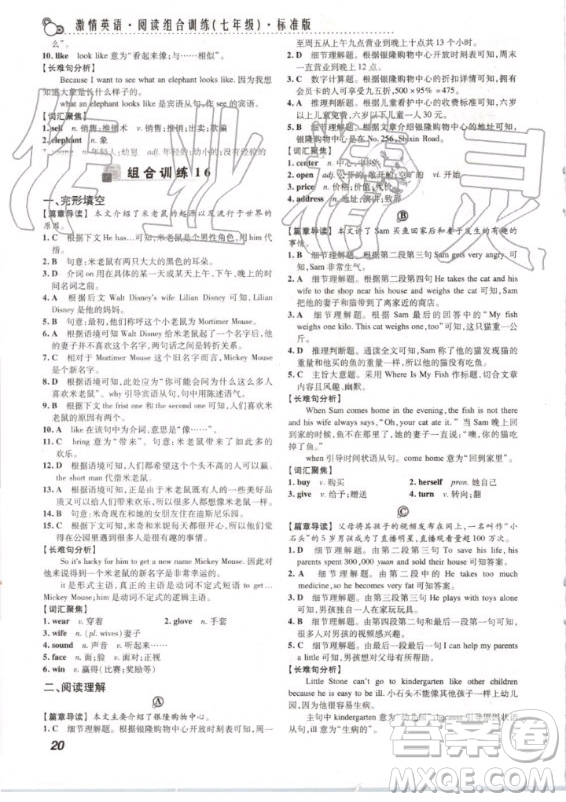 激情英语·阅读组合训练(七年级)·标准版
10. A like look like 意为“看起来像,与……相似”。
【长难句分析】
Because I want to see what an elephant looks like. 因为我想知道大象是什么样子的。
what an elephant looks like 是宾语从句,作 see 的宾语。
【词汇聚焦】
1. sell n. 销售;推销术 v. 销售;推销;出卖;欺骗
2. elephant n. 象
组合训练 16
一、完形填空
【篇章导读】本文介绍了米老鼠的起源以及流行于世界的
原因。
1. C 根据下文 He has…可知,米老鼠是个男性角色,用 him 代
指。
2. B 句意:米老鼠有两只大大的黑色的耳朵。
3. D 介词 on 用于具体的某一天或某天的早中晚。
4. A 根据后文 Walt Disney's wife Lilian Disney 可知,Lilian
Disney 是他的妈妈。
5. B 根据语境可知,Walt Disney 给老鼠起了一个名字后,他
的妻子并不喜欢这个名字,两句之间为转折关系。
6. A 根据上文可知,他们称呼这个小老鼠为 Mortimer Mouse。
7. C 相对于 Mortimer Mouse 这个旧名字而言,Mickey Mouse
是个新名字。
8. D 根据语境可知,并非每个人都知道为什么全世界的人都
喜欢米老鼠。why 引导宾语从句,作动词 know 的宾语。
9. B 根据下文 the frist one and the second one 可知,人们喜欢米
老鼠的原因有两个。
10. A like 在本句中作为介词,意思是“像……”。
11. C bring 意为“带来”。句意:米老鼠带来了如此多的
欢乐。
12. D 根据语境可知,米老鼠把生活中的不幸都带走了。
13. A 根据语境可知,小个子战胜了大高个可以用 him,
the short man 代指米老鼠。
14. C 句意:米老鼠和它的朋友们使人们开怀大笑。
15. B 句意:每天都有很多的人来到迪斯尼乐园。
【长难句分析】
So it's lucky for him to get a new name Mickey Mouse. 因
此它得到米老鼠这个新名字是非常幸运的。
it 是形式主语,真正的主语是动词不定式短语 to get…
Mickey Mouse;him 是动词不定式的逻辑主语。
【词汇聚焦】
1. wear v. 穿;戴 2. glove n. 手套
3. wife n. (pl. wives) 妻子
4. sound n. 声音 v. 听起来;发声
5. face n. 面;脸 v. 面对;正视
6. win v. 赢得(比赛;奖励等)
二、阅读理解
Ⓐ
【篇章导读】本文主要介绍了银隆购物中心。
1. C 细节理解题。根据银隆购物中心开放时刻表可知,周一
20
至周五从上午九点营业到晚上十点共 13 个小时。
2. B 细节理解题。根据银隆购物中心开放时刻表可知,周末
营业到晚上 12 点。
3. C 数字计算题。根据银隆购物中心的打折细节可知,拥有
会员卡的人可享受九五折,500×95%=475。
4. A 推理判断题。根据儿童看护中心的收费标准可知,六岁
【词汇聚焦】
1. center n. 中心,中央
4. address n. 地址
Ⓑ
【篇章导读】本文讲了 Sam 买鱼回家后和妻子发生的有趣的
事情。
1. B 细节理解题。根据第二段第三句 Sam gets very angry. 可
知,Sam 非常生气。
2. C 细节理解题。根据第二段第四句 He takes the cat and his
wife to the shop near his house and weighs the cat. 可知,他
把妻子和猫带到了离家最近的商店。
3. A 细节理解题。根据 Sam 最后的回答中的“My fish
weighs one kilo. This cat weighs one, too”可知,这只猫重一
公斤。
4. D 推理判断题。通读全文可知,Sam 称了他的猫发现猫的
重量和他的鱼的重量是一样的,因此他认为是猫吃了鱼。
5. C 主旨大意题。采用 Where Is My Fish 作标题,切合文章
内容且风趣、幽默。
【长难句分析】
When Sam comes home in the evening, the fish is not there
and his wife always says, “Oh, your cat ate it. ”当 Sam 晚上
回到家的时候,鱼不在家里而他的妻子总说:“噢,你的猫吃
掉了鱼。”
when 引导时间状语从句。
【词汇聚焦】
1. buy v. 购买 2. herself pron. 她自己
3. give v. 给予;赠送 4. turn v. 转动
Ⓒ
【篇章导读】父母将其孩子的视频发布在网上,一名叫作“小
石头”的 5 岁男孩成了直播明星,粉丝数量超 100 万次。
1. D 细节理解题。由第二段第三句 To save his life, his
parents spent 300,000 yuan and sold their house 可知答案。
2. C 细节理解题。由第二段中的 He takes too much
medicine, so he becomes fat 可知答案。
3. A 细节理解题。由第四段第三句 He plays toys with other
children at home 可知小石头和其他人在家玩玩具。
4. B 细节理解题。由第四段第四句 He can help his parents
a little 可知,他可以帮父母做些家务。
【长难句分析】
Little Stone can't go to kindergarten like other children
because he is seriously ill. 小石头不能像其他孩子一样上幼儿
园,因为他病得很严重。